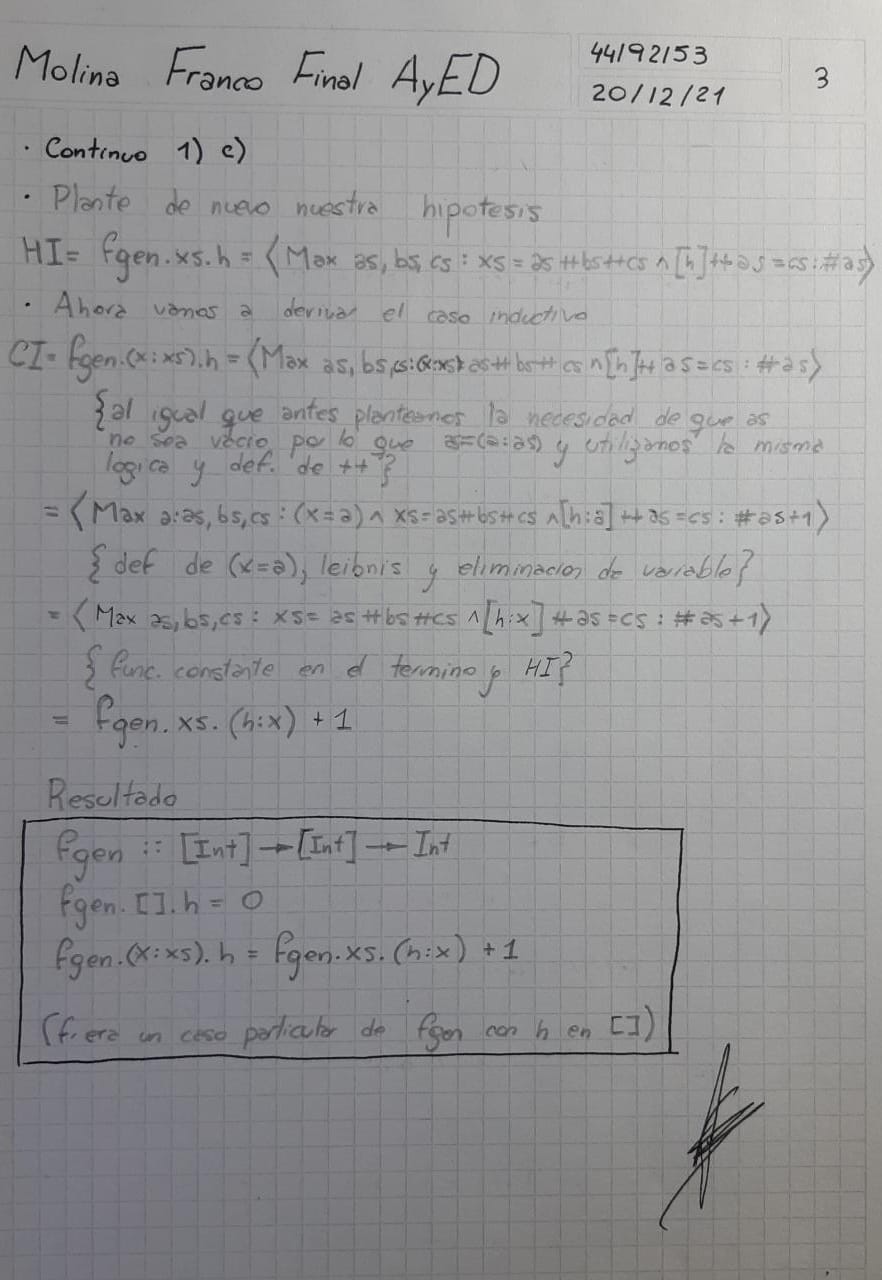 Molina Franco Final AyED
44192153
20/12/21
3
· Continuo 1) c)
· Plante de nuevo nuestra hipotesis
HI= fgen.xs.h = ⟨Max as, bs, cs : xs = as ++ bs ++ cs ∧ [h] ++ as = cs : #as⟩
· Ahora vamos a derivar el caso inductivo
CI= fgen.(x:xs).h = ⟨Max as, bs, cs : (x:xs) = as ++ bs ++ cs ∧ [h] ++ as = cs : #as⟩
{al igual que antes planteamos la necesidad de que as
no sea vacio por lo que as=(a:as) y utilizamos la misma
logica y def. de ++}
= ⟨Max a:as, bs, cs : (x=a) ∧ xs = as ++ bs ++ cs ∧ [h:a] ++ as = cs : #as+1⟩
{def de (x=a), leibnis y eliminacion de variable}
= ⟨Max as, bs, cs : xs = as ++ bs ++ cs ∧ [h:x] ++ as = cs : #as+1⟩
{func. constante en el termino y HI}
= fgen.xs.(h:x) + 1
Resultado
fgen :: [Int] → [Int] → Int
fgen.[].h = 0
fgen.(x:xs).h = fgen.xs.(h:x) + 1
(f. era un caso particular de fgen con h en [])